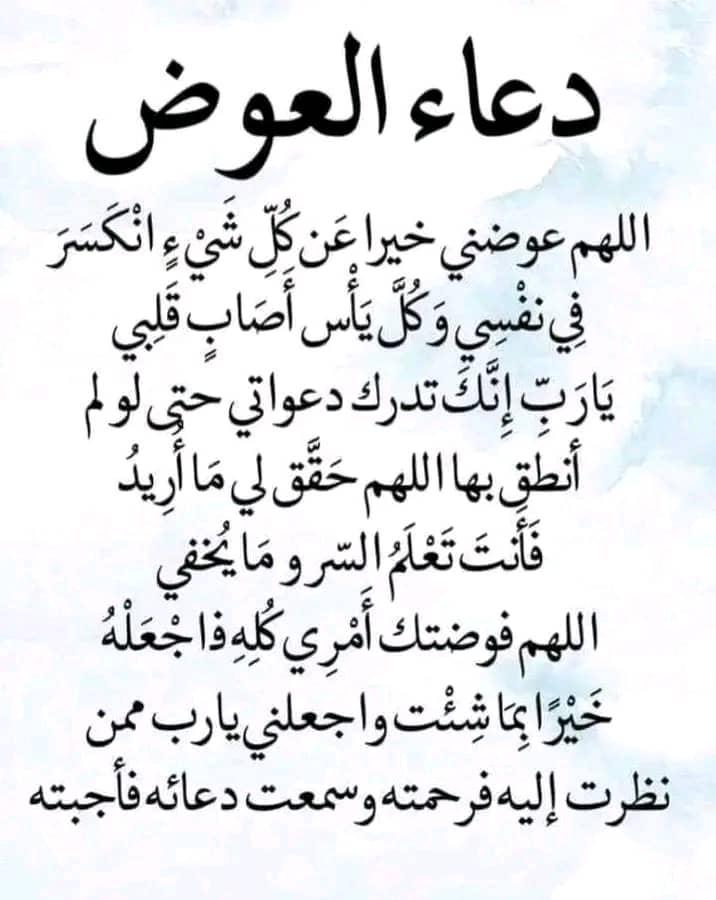 دعاء العوض
اللهم عوضني خيرا عَن كُلِّ شَيْءٍ انْكَسَرَ
فِي نفْسِي وَكُلَّ يَأْس أَصَابٍ قَلِبي
يَارَبِّ إِنَّكَ تدرك دعواتي حتى لو لم
أنطق بها اللهم حَقَّق لي مَا أُرِيدُ
فَأَنتَ تَعْلَمُ السّر و مَا يُخفي
اللهم فوضتك أَمْرِي كُلِهِ فاجْعَلْهُ
خَيْرًا بِمَا شِئْت واجعلني يارب ممن
نظرت إليه فرحمته وسمعت دعائه فأجبته